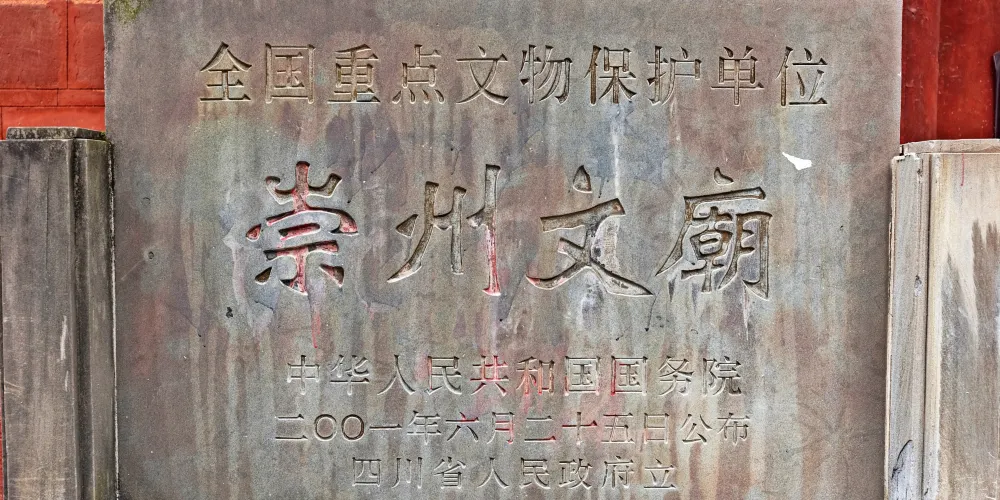 全国重点文物保护单位
崇州文廟
中华人民共和国国务院
二〇〇一年六月二十五日公布
四川省人民政府立